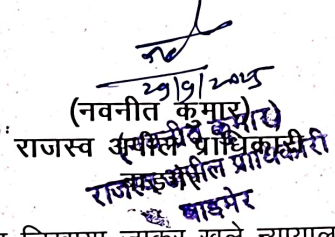 29/9/2025
(नवनीत कुमार)
राजस्व अपील प्राधिकारी
बाड़मेर
(नवनीत कुमार)
राजस्व अपील प्राधिकारी
बाडमेर
जाकर खुले न्यायाल